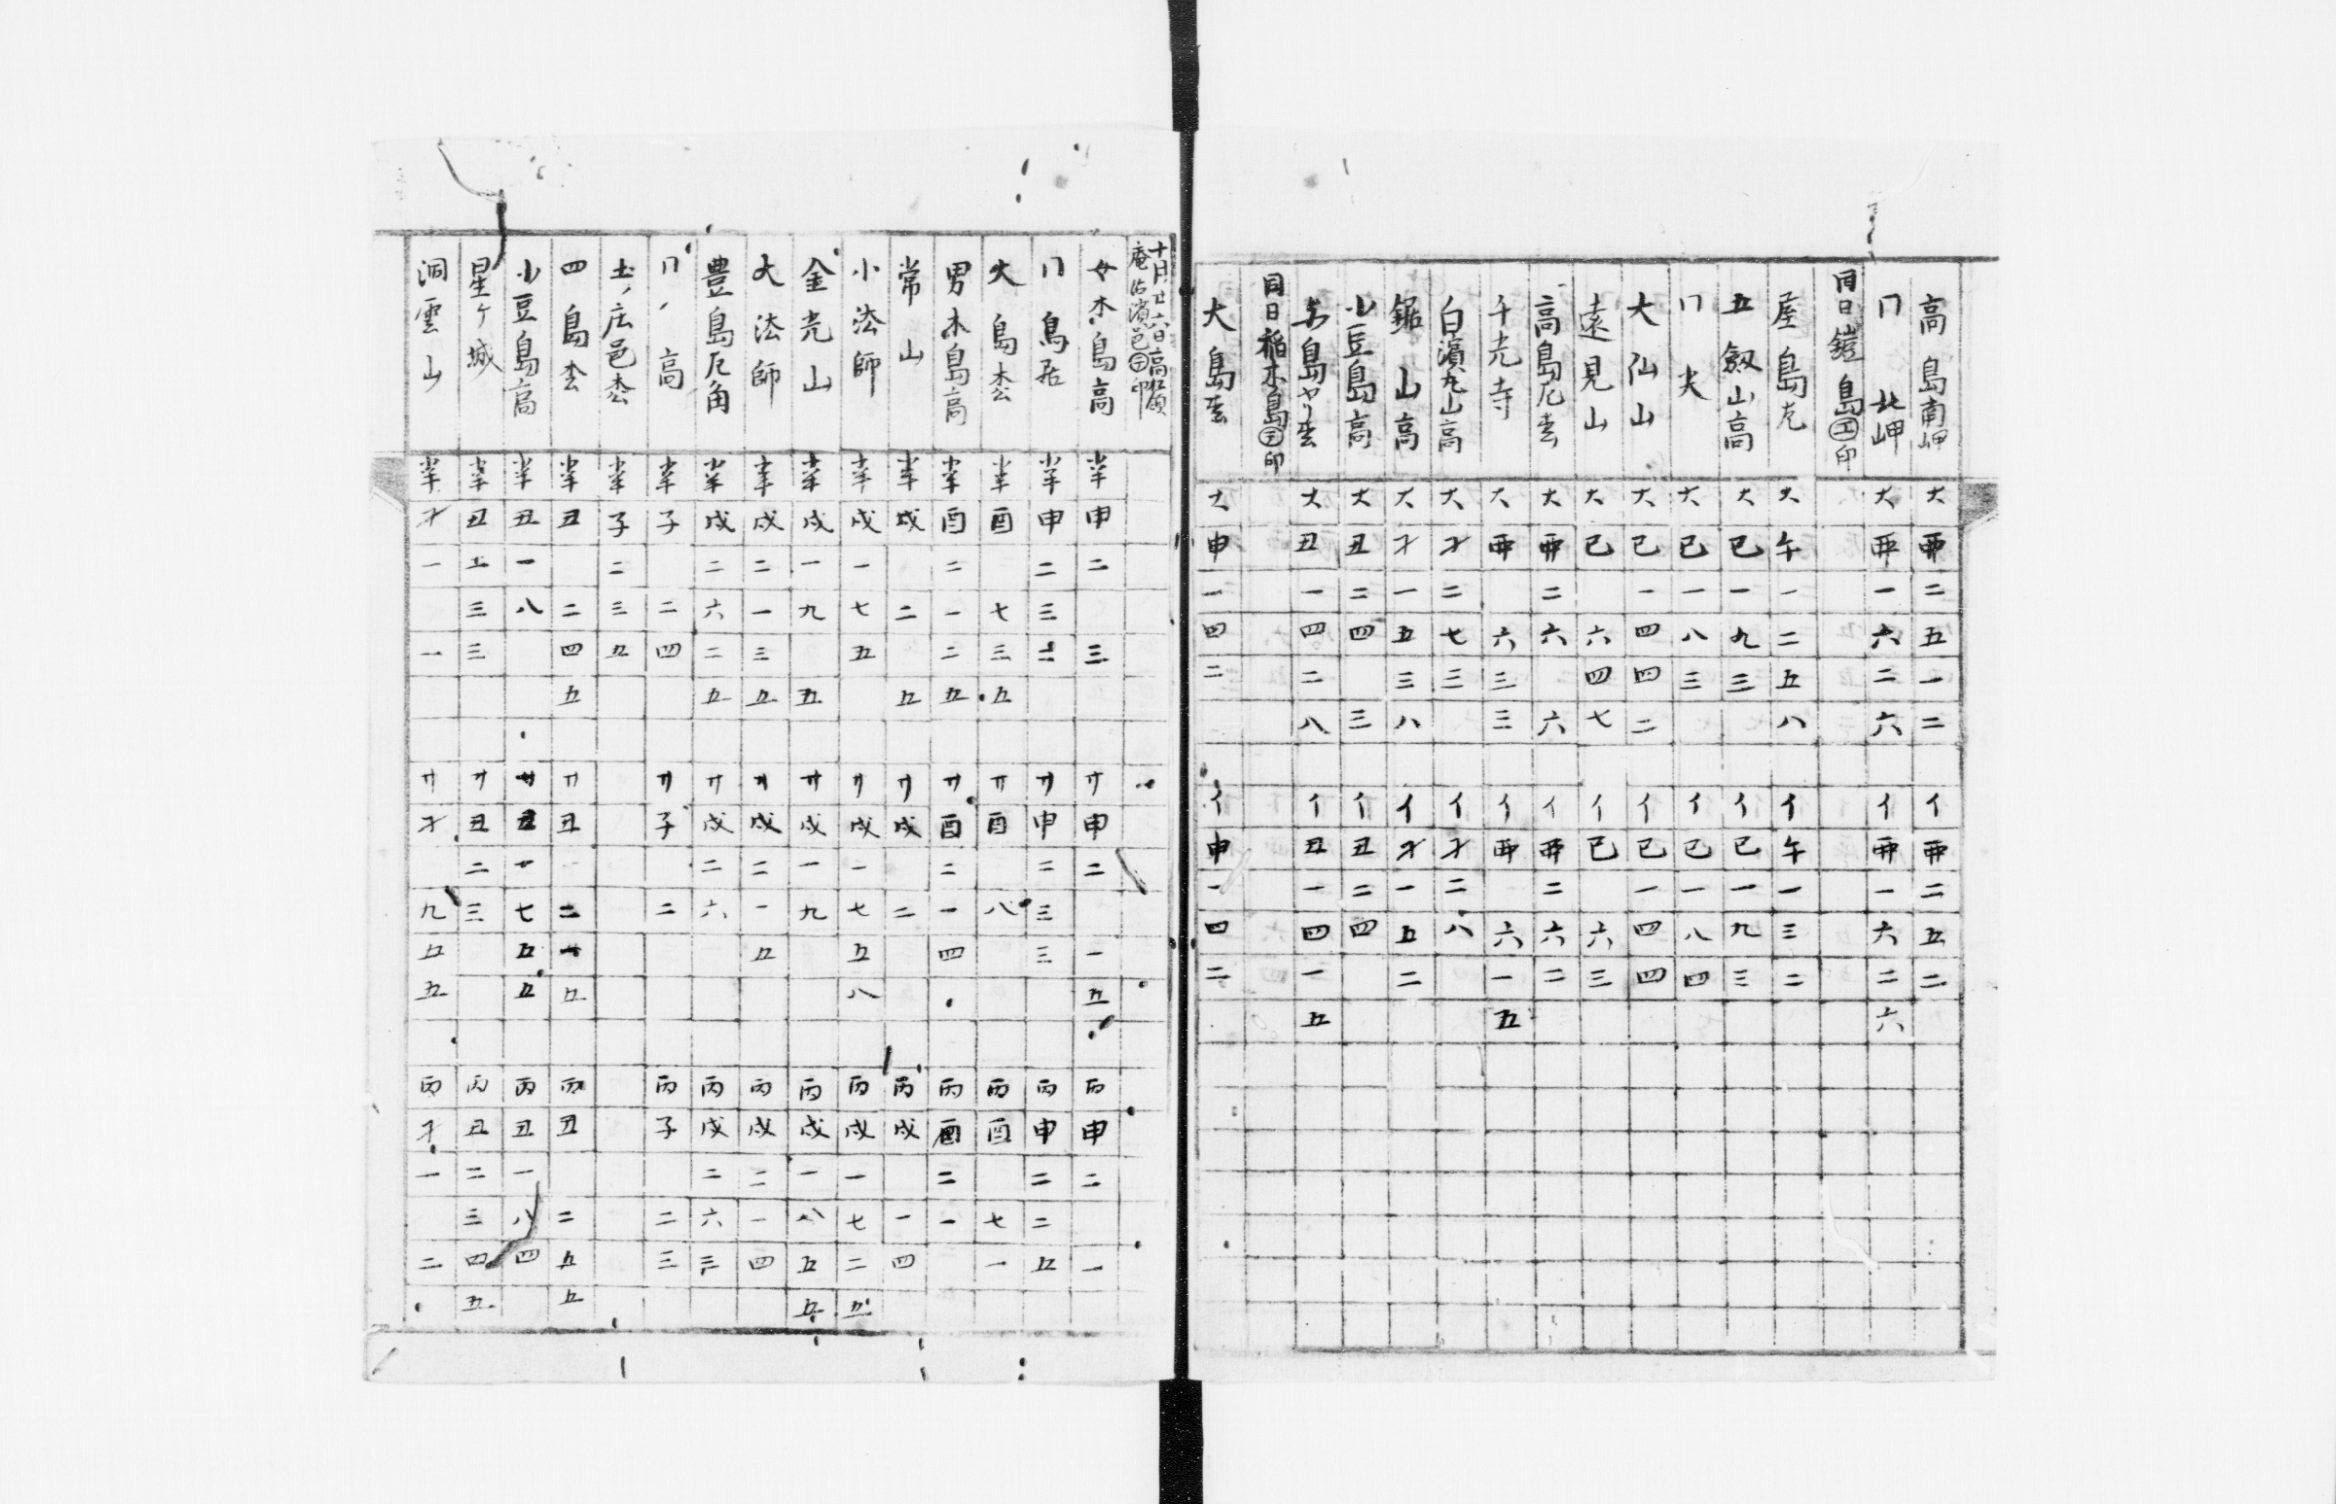 高島南岬 大 酉 二 五 一 二 イ 酉 二 五 二
〃 北岬 大 酉 一 六 二 六 イ 酉 一 六 二 六
同日鎧島㋓印
屋島 大 午 一 二 五 八 イ 午 一 三 二
五剱山高 大 巳 一 九 三 イ 巳 一 九 三
大 巳 一 八 三 イ 巳 一 八 四
大仙山 大 巳 一 四 四 二 イ 巳 一 四 四
遠見山 大 巳 六 四 七 イ 巳 六 三
高島 大 酉 二 六 六 イ 酉 二 六 二
千光寺 大 酉 六 三 三 イ 酉 六 一 五
白濱丸山高 大 才 二 七 三 イ 才 二 八
鋸山高 大 才 一 五 三 八 イ 才 一 五 二
小豆島高 大 丑 二 四 三 イ 丑 二 四
島 大 丑 一 四 二 八 イ 丑 一 四 一 五
同日稲木島 印
大島 大 申 一 四 二 イ 申 一 四 二
十月廿六日
庵治濱邑 印
女木島高 半 申 二 三 廾 申 二 一 五 丙 申 二 一
半 申 二 三 二 廾 申 二 三 三 丙 申 二 二 五
大島 半 酉 七 三 五 廾 酉 八 丙 酉 七 一
男木島高 半 酉 二 一 二 五 廾 酉 二 一 四 丙 酉 二 一
常山 半 戌 二 五 廾 戌 二 丙 戌 一 四
小法師 半 戌 一 七 五 廾 戌 一 七 五 八 丙 戌 一 七 二 五
金光山 半 戌 一 九 五 廾 戌 一 九 丙 戌 一 八 五 五
大法師 半 戌 二 一 三 五 廾 戌 二 一 五 丙 戌 二 一 四
豊島 角 半 戌 二 六 二 五 廾 戌 二 六 丙 戌 二 六 三
高 半 子 二 四 廾 子 二 丙 子 二 三
土ノ庄邑 半 子 二 三 五
四島 半 丑 二 四 五 廾 丑 二 一 五 丙 丑 二 五 五
小豆島高 半 丑 一 八 廾 丑 一 七 五 五 丙 丑 一 八 四
星ヶ城 半 丑 二 三 三 廾 丑 二 三 丙 丑 二 三 四 五
洞雲山 半 才 一 一 廾 才 九 五 五 丙 才 一 二